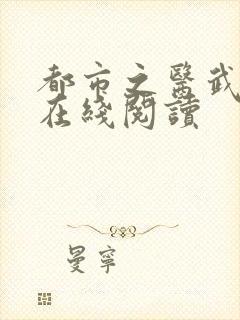 都市之醫武
在綫閱讀
曼寧